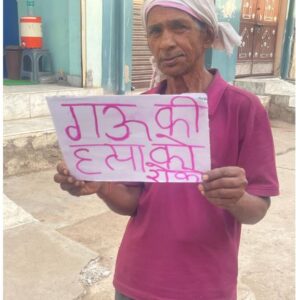 गऊ की
हत्या को
रोको